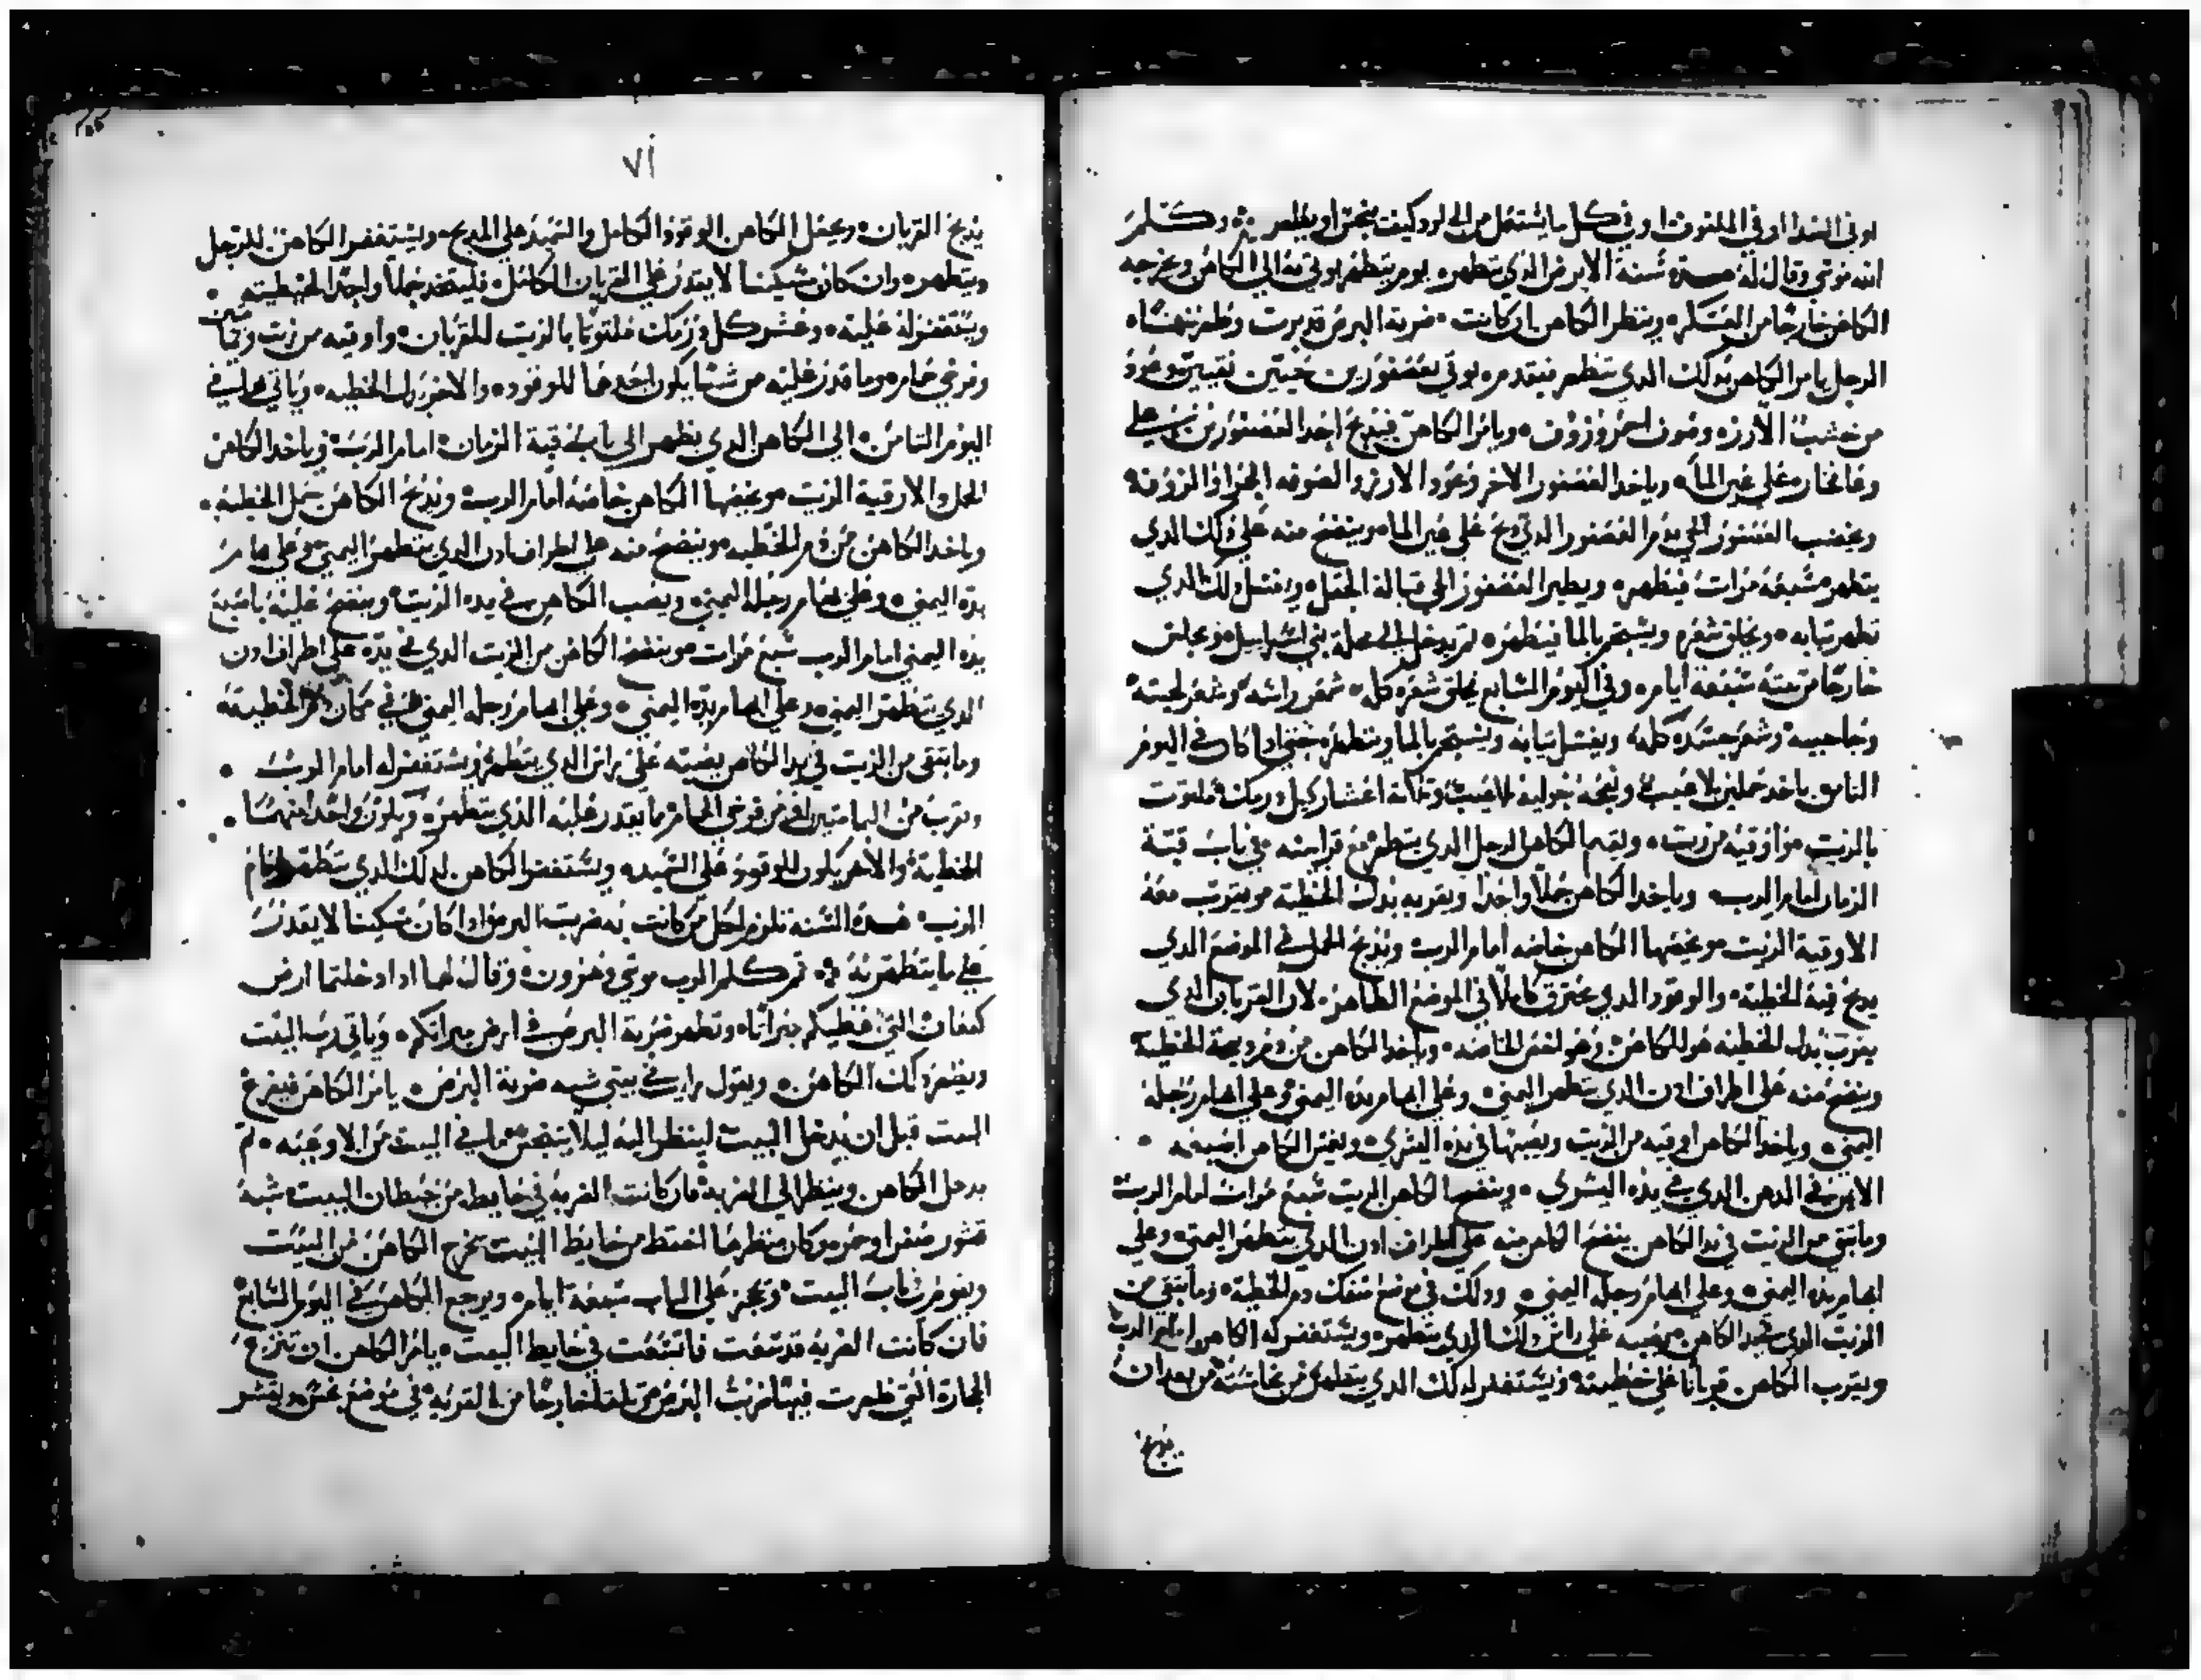 او في السدا او في الملفوف او في كل ما يستعمل من الجلود كيف ينجس او يطهر وكلم
الله موسي وقال له هده سنة الابرص الدي يتطهر يوم يتطهر يوتي به الي الكاهن ويخرجه
الكاهن خارجا من العسكر وينظر الكاهن ان كانت ضربة البرص قد بريت وطهر منها
الرجل يامر الكاهن بدلك الدي يتطهر فيقدم ويوتي بعصفورين حيين نقيين وعود
من خشب الارزه وصوف احمر وزوف ويامر الكاهن فيدبح احد العصفورين علي
وعا فخار علي عين الما وياخد العصفور الاخر وعود الارز والصوفه الحمرا والزوفه
ويخضب العصفور الحي بدم العصفور الدي دبح علي عين الما وينضح منه علي دلك الدي
يتطهر سبعة مرات فيطهر ويطير العصفور الحي قبالة الحقل ويغسل دلك الدي
تطهر تيابه ويحلق شعره ويستحم بالما فيطهر تم يدخل الي محلة بني اسراييل ويجلس
خارجا من بيته سبعة ايام وفي اليوم السابع يحلق شعره كله شعر راسه وشعر لحيته
وحاجبيه وشعر جسده كله ويغسل تيابه ويستحم بالما ويتطهر حتي ادا كان في اليوم
التامن ياخد حملين بلا عيب ونعجه حوليه بلا عيب وتلاتة اعشار كيل درمك ملتوت
بالزيت واوقيه من زيت ويقيم الكاهن الرجل الدي يتطهر مع قرابينه في باب قبة
الزمان امام الرب وياخد الكاهن حملا واحدا ويقربه بدل الخطية ويقرب معه
الاوقية الزيت ويخصها الكاهن خاصه امام الرب ويدبح الحمل في الموضع الدي
يدبح فيه الخطية والوقود الدي يحترق كاملا في الموضع الطاهر لان القربان الدي
يقرب بدل الخطيه هو للكاهن وهو لقدس الخاصه وياخد الكاهن من دم دبيحة الخطية
وينضح منه علي اطراف ادن الدي يتطهر اليمني وعلي ابهام يده اليمني وعلي ابهام رجله
اليمني وياخد الكاهن اوقيه من الزيت ويصبها في يده اليسري ويغمس الكاهن اصبعه
الايمن في الدهن الدي في يده اليسري وينضح الكاهن الزيت سبع مرات امام الرب
وما بقي من الزيت في يد الكاهن ينضح الكاهن منه علي اطراف ادن الدي يتطهر اليمني وعلي
ابهام يده اليمني وعلي ابهام رجله اليمني ودلك في موضع سفك دم الخطية وما بقي من
الزيت الدي بيد الكاهن يصبه علي راس دلك الدي يتطهر ويستغفر له الكاهن امام الرب
ويقرب الكاهن قربانا علي خطيته ويستغفر لدلك الدي يتطهر من نجاسته من بعد ان
يدبح
٧١
يدبح القربان ويجعل الكاهن الوقود الكامل والسميد علي المدبح ويستغفر الكاهن للرجل
ويتطهر وان كان مسكينا لا يقدر علي القربان الكامل فليتخد حملا واحدا لخطيته
ويستغفر له عليه وعشر كل درمك ملتوتا بالزيت للقربان واوقيه من زيت ويمامتين
وفرخي حمام وما قدر عليه من شتها يكون احدها للوقود والاخر بدل الخطيه وياتي بها في
اليوم التامن الي الكاهن الدي يطهر الي باب قبة الزمان امام الرب وياخد الكاهن
الحمل والاوقية الزيت ويخصها الكاهن خاصة امام الرب ويدبح الكاهن حمل الخطية
وياخد الكاهن من دم الخطيه وينضح منه علي اطراف ادن الدي يتطهر اليمني وعلي ابهام
يده اليمني وعلي ابهام رجله اليمني ويصب الكاهن في يده الزيت وينضح عليه باصبع
يده اليمني امام الرب سبع مرات وينضح الكاهن من الزيت الدي في يده علي اطراف ادن
الدي يتطهر اليمني وعلي ابهام يده اليمني وعلي ابهام رجله اليمني في مكان دم الخطيئة
وما بقي من الزيت في يد الكاهن يصبه علي راس الدي يتطهر ويستغفر له امام الرب
ويقرب من اليمامتين او من فرخي الحمام ما يقدر عليه الدي يتطهر ويكون واحد منهما
الخطية والاخر يكون للوقود علي السميد ويستغفر الكاهن لدلك الدي يتطهر امام
الرب هده السنه تلزم لكل من كانت به ضربت البرص ادا كان مسكينا لا يقدر
علي ما يتطهر به تم كلم الرب موسي وهرون وقال لهما ادا دخلتما ارض
كنعان التي نعطيكم ميراتا وتظهر ضربة البرص في ارض ميراتكم وياتي رب البيت
ويخبر دلك الكاهن ويقول راي في بيتي شبه ضربة البرص يامر الكاهن فيفرغ
البيت قبل ان يدخل البيت لينظر اليه ليلا يتنجس ما في البيت من الاوعيه تم
يدخل الكاهن وينظر الي الضربه فان كانت الضربه في حايط من حيطان البيت شبه
قشور صفر او حمر وكان منظرها اهبط من حايط البيت يخرج الكاهن من البيت
ويقوم في باب البيت ويحجز علي الباب سبعة ايام ويرجع الكاهن في اليوم السابع
فان كانت الضربه قد سعت فاتسعت في حايط البيت يامر الكاهن ان تنزع
الحجارة التي ظهرت فيها ضربت البرص وتلقا خارجا من القريه في موضع نجس ويقشر